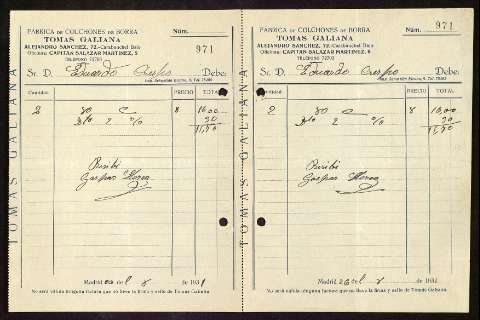 FABRICA DE COLCHONES DE BORRA
TOMAS GALIANA
ALEJANDRO SANCHEZ, 72.-Carabanchel Bajo
Oficina: CAPITAN SALAZAR MARTINEZ, 5
TELEFONO 72793
Núm.
971
Sr. D. Eduardo Crespo Debe:
Cantidad PRECIO TOTAL
2 80 8 16,00
2 %
Recibí
Gaspar
TOMAS GALIANA
Madrid de 1931
No será válida ninguna factura que no lleve la firma y sello de Tomás Galiana
TOMAS GALIANA
FABRICA DE COLCHONES DE BORRA
TOMAS GALIANA
ALEJANDRO SANCHEZ, 72.-Carabanchel Bajo
Oficina: CAPITAN SALAZAR MARTINEZ, 5
TELEFONO 72793
Núm. 971
Sr. D. Eduardo Crespo Debe:
Cantidad PRECIO TOTAL
2 80 8 16,00
2 %
Recibí
Gaspar
Madrid de 193
No será válida ninguna factura que no lleve la firma y sello de Tomás Galiana